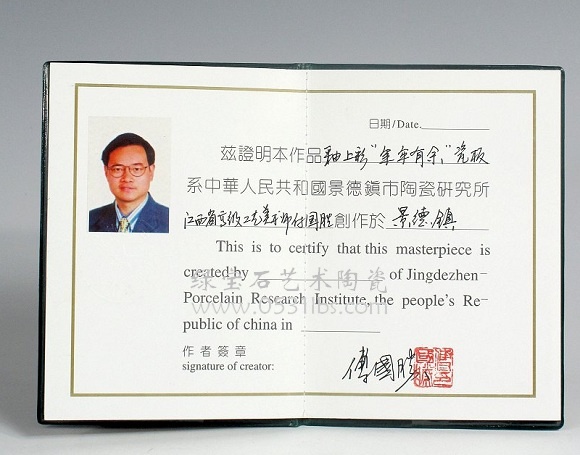 日期/Date.
茲證明本作品釉上彩"年年有余"瓷板
系中華人民共和國景德鎮市陶瓷研究所
江西省高級工艺美术师付国胜創作於景德鎮
This is to certify that this masterpiece is
created by of Jingdezhen-
Porcelain Research Institute, the people's Re-
public of china in
绿宝石艺术陶瓷
www.0531lbs.com
作者簽章
signature of creator:
傅國勝